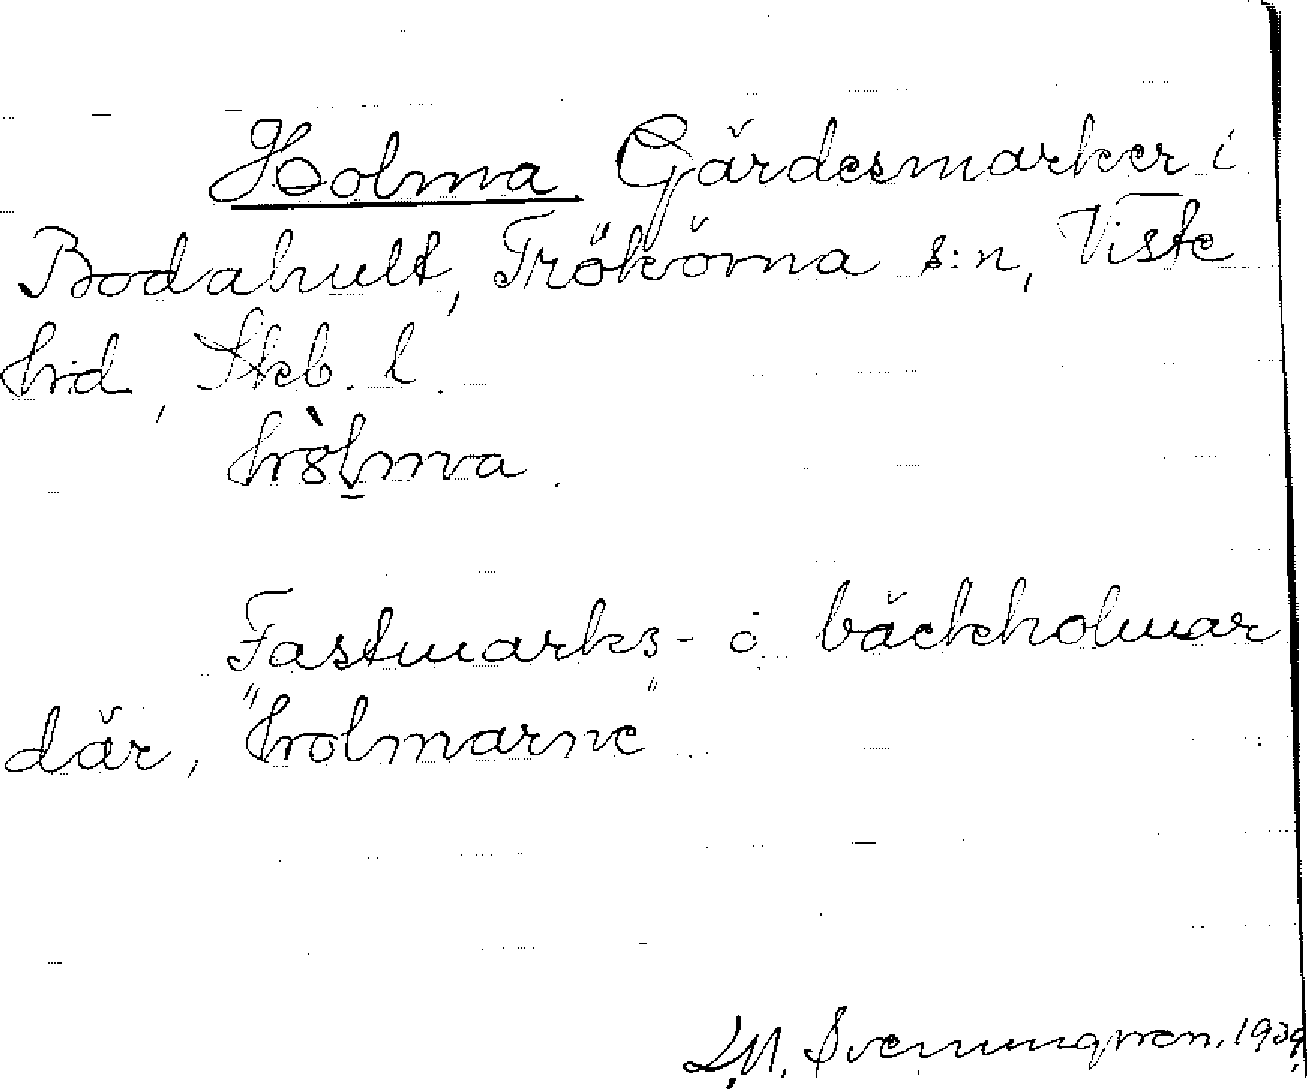 Holma Gärdesmarker i
Bodahult, Trökörna s:n, Viste
hd, Skb. l.
hòlma.
Fastmarks- o. bäckholmar
där, "holmarne"
S.M. Svenungsson. 1939.